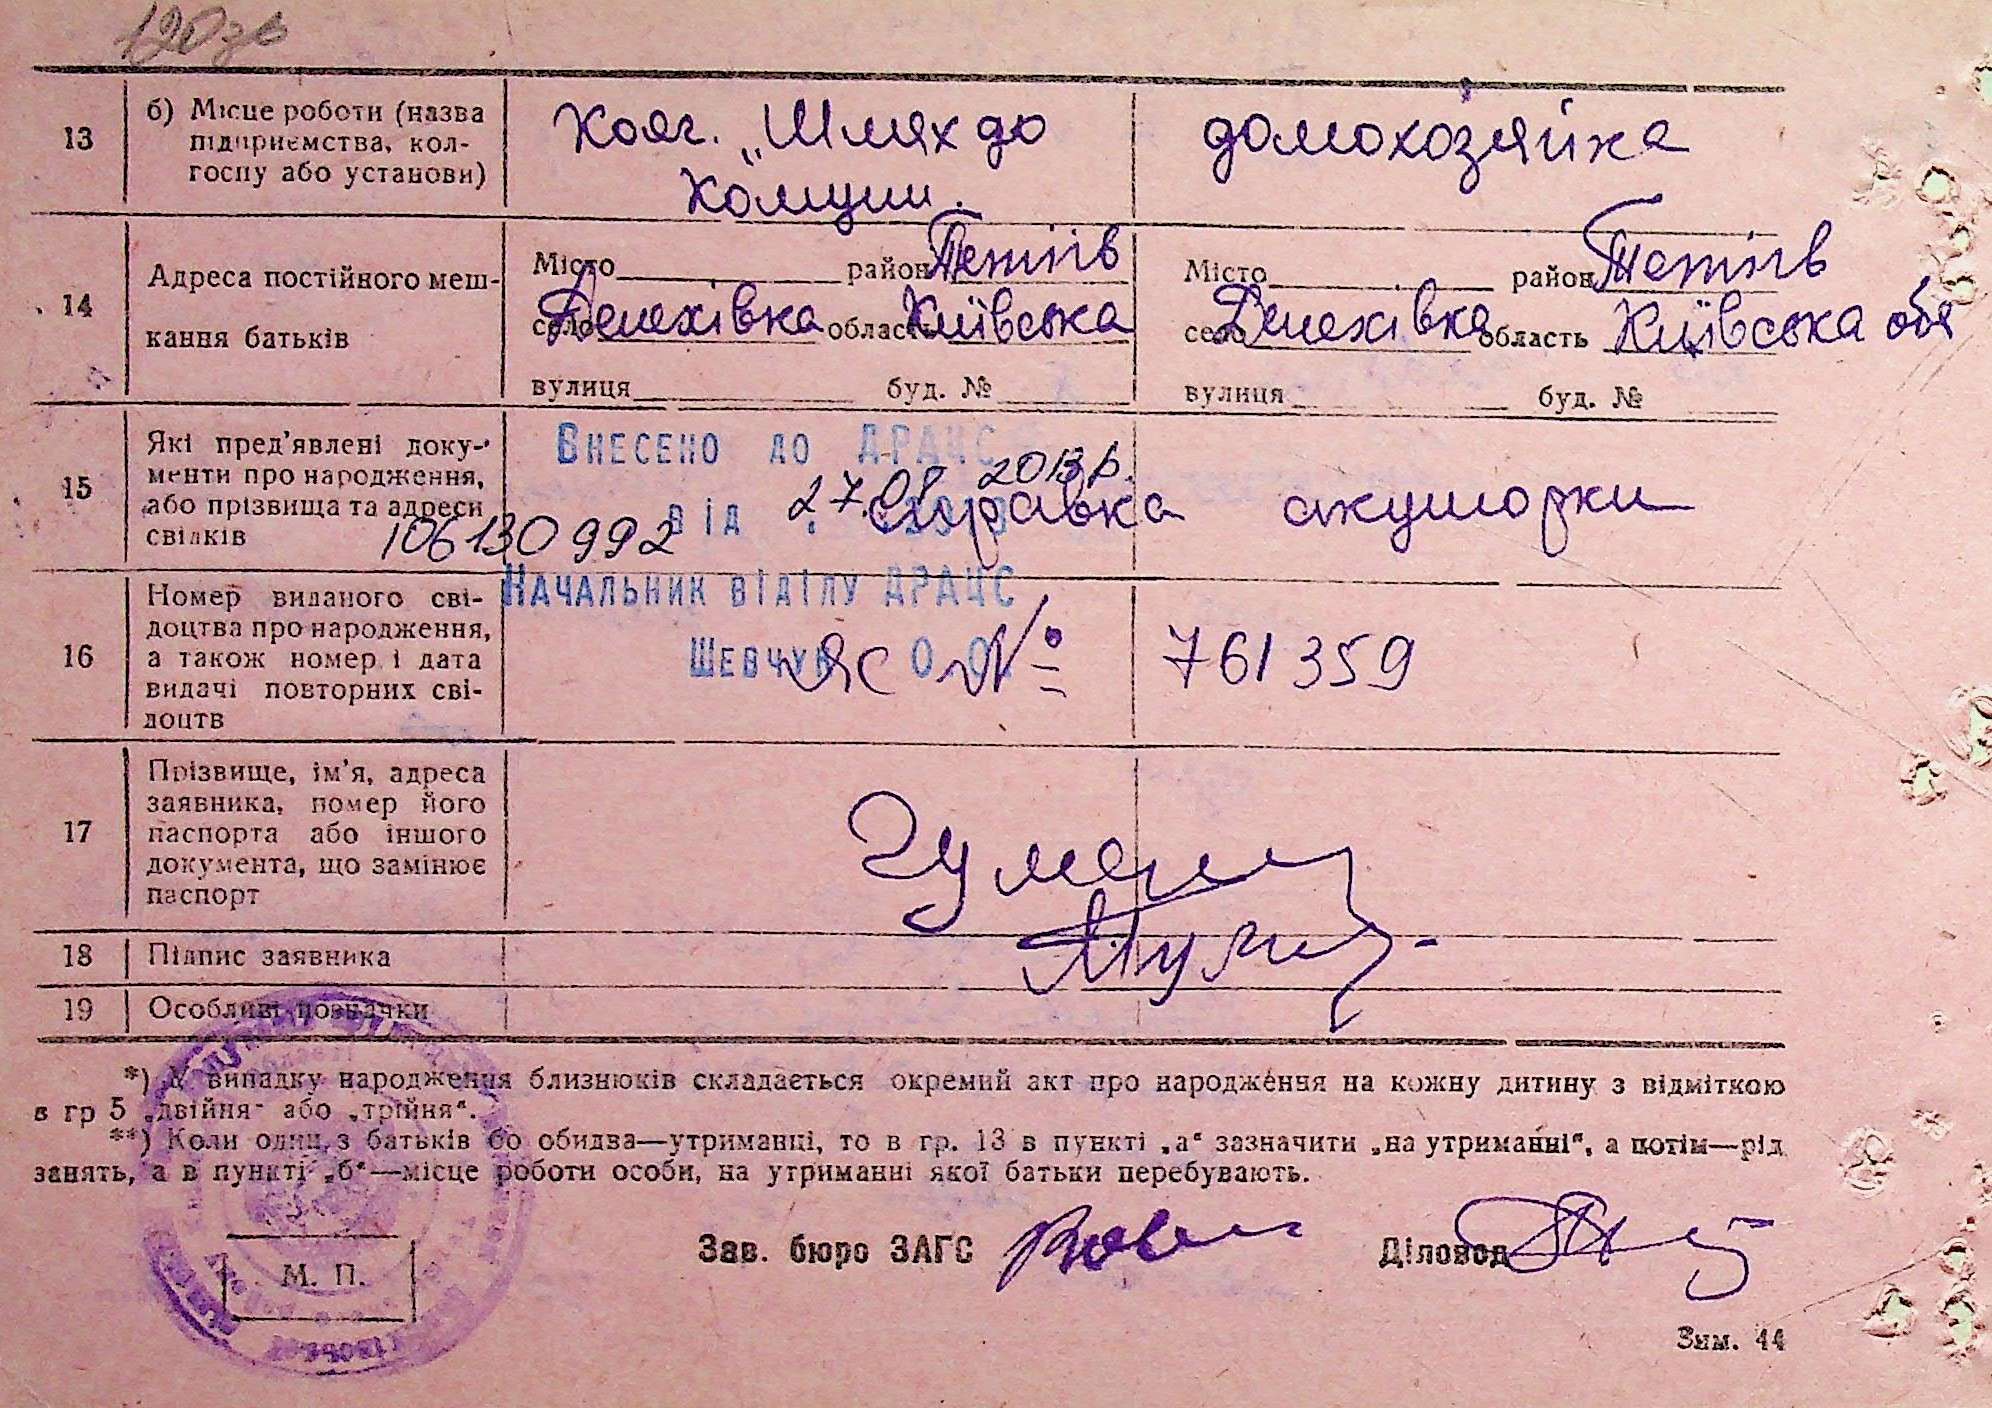 120 зв
13
б) Місце роботи (назва
підприємства, кол-
госпу або установи)
Колг. „Шлях до
Комуни.
домохозяйка
14
Адреса постійного меш-
кання батьків
Місто район Тетіїв
село Денехівка область Київська
вулиця буд. №
Місто район Тетіїв
село Денехівка область Київська обл
вулиця буд. №
15
Які пред'явлені доку-
менти про народження,
або прізвища та адреси
свідків
Внесено до ДРАЦС
від 27.08 2013 р.
106130992
справка акушорки
Начальник відділу ДРАЦС
Шевчук О.О.
16
Номер виданого сві-
доцтва про народження,
а також номер і дата
видачі повторних сві-
доцтв
ЯС № 761359
17
Прізвище, ім'я, адреса
заявника, номер його
паспорта або іншого
документа, що замінює
паспорт
18
Підпис заявника
19
Особливі позначки
*) У випадку народження близнюків складається окремий акт про народження на кожну дитину з відміткою
в гр 5 „двійня" або „трійня".
**) Коли один з батьків бо обидва—утриманці, то в гр. 13 в пункті „а" зазначити „на утриманні", а потім—рід
занять, а в пункті „б"—місце роботи особи, на утриманні якої батьки перебувають.
Зав. бюро ЗАГС
Діловод
М. П.
Зим. 44